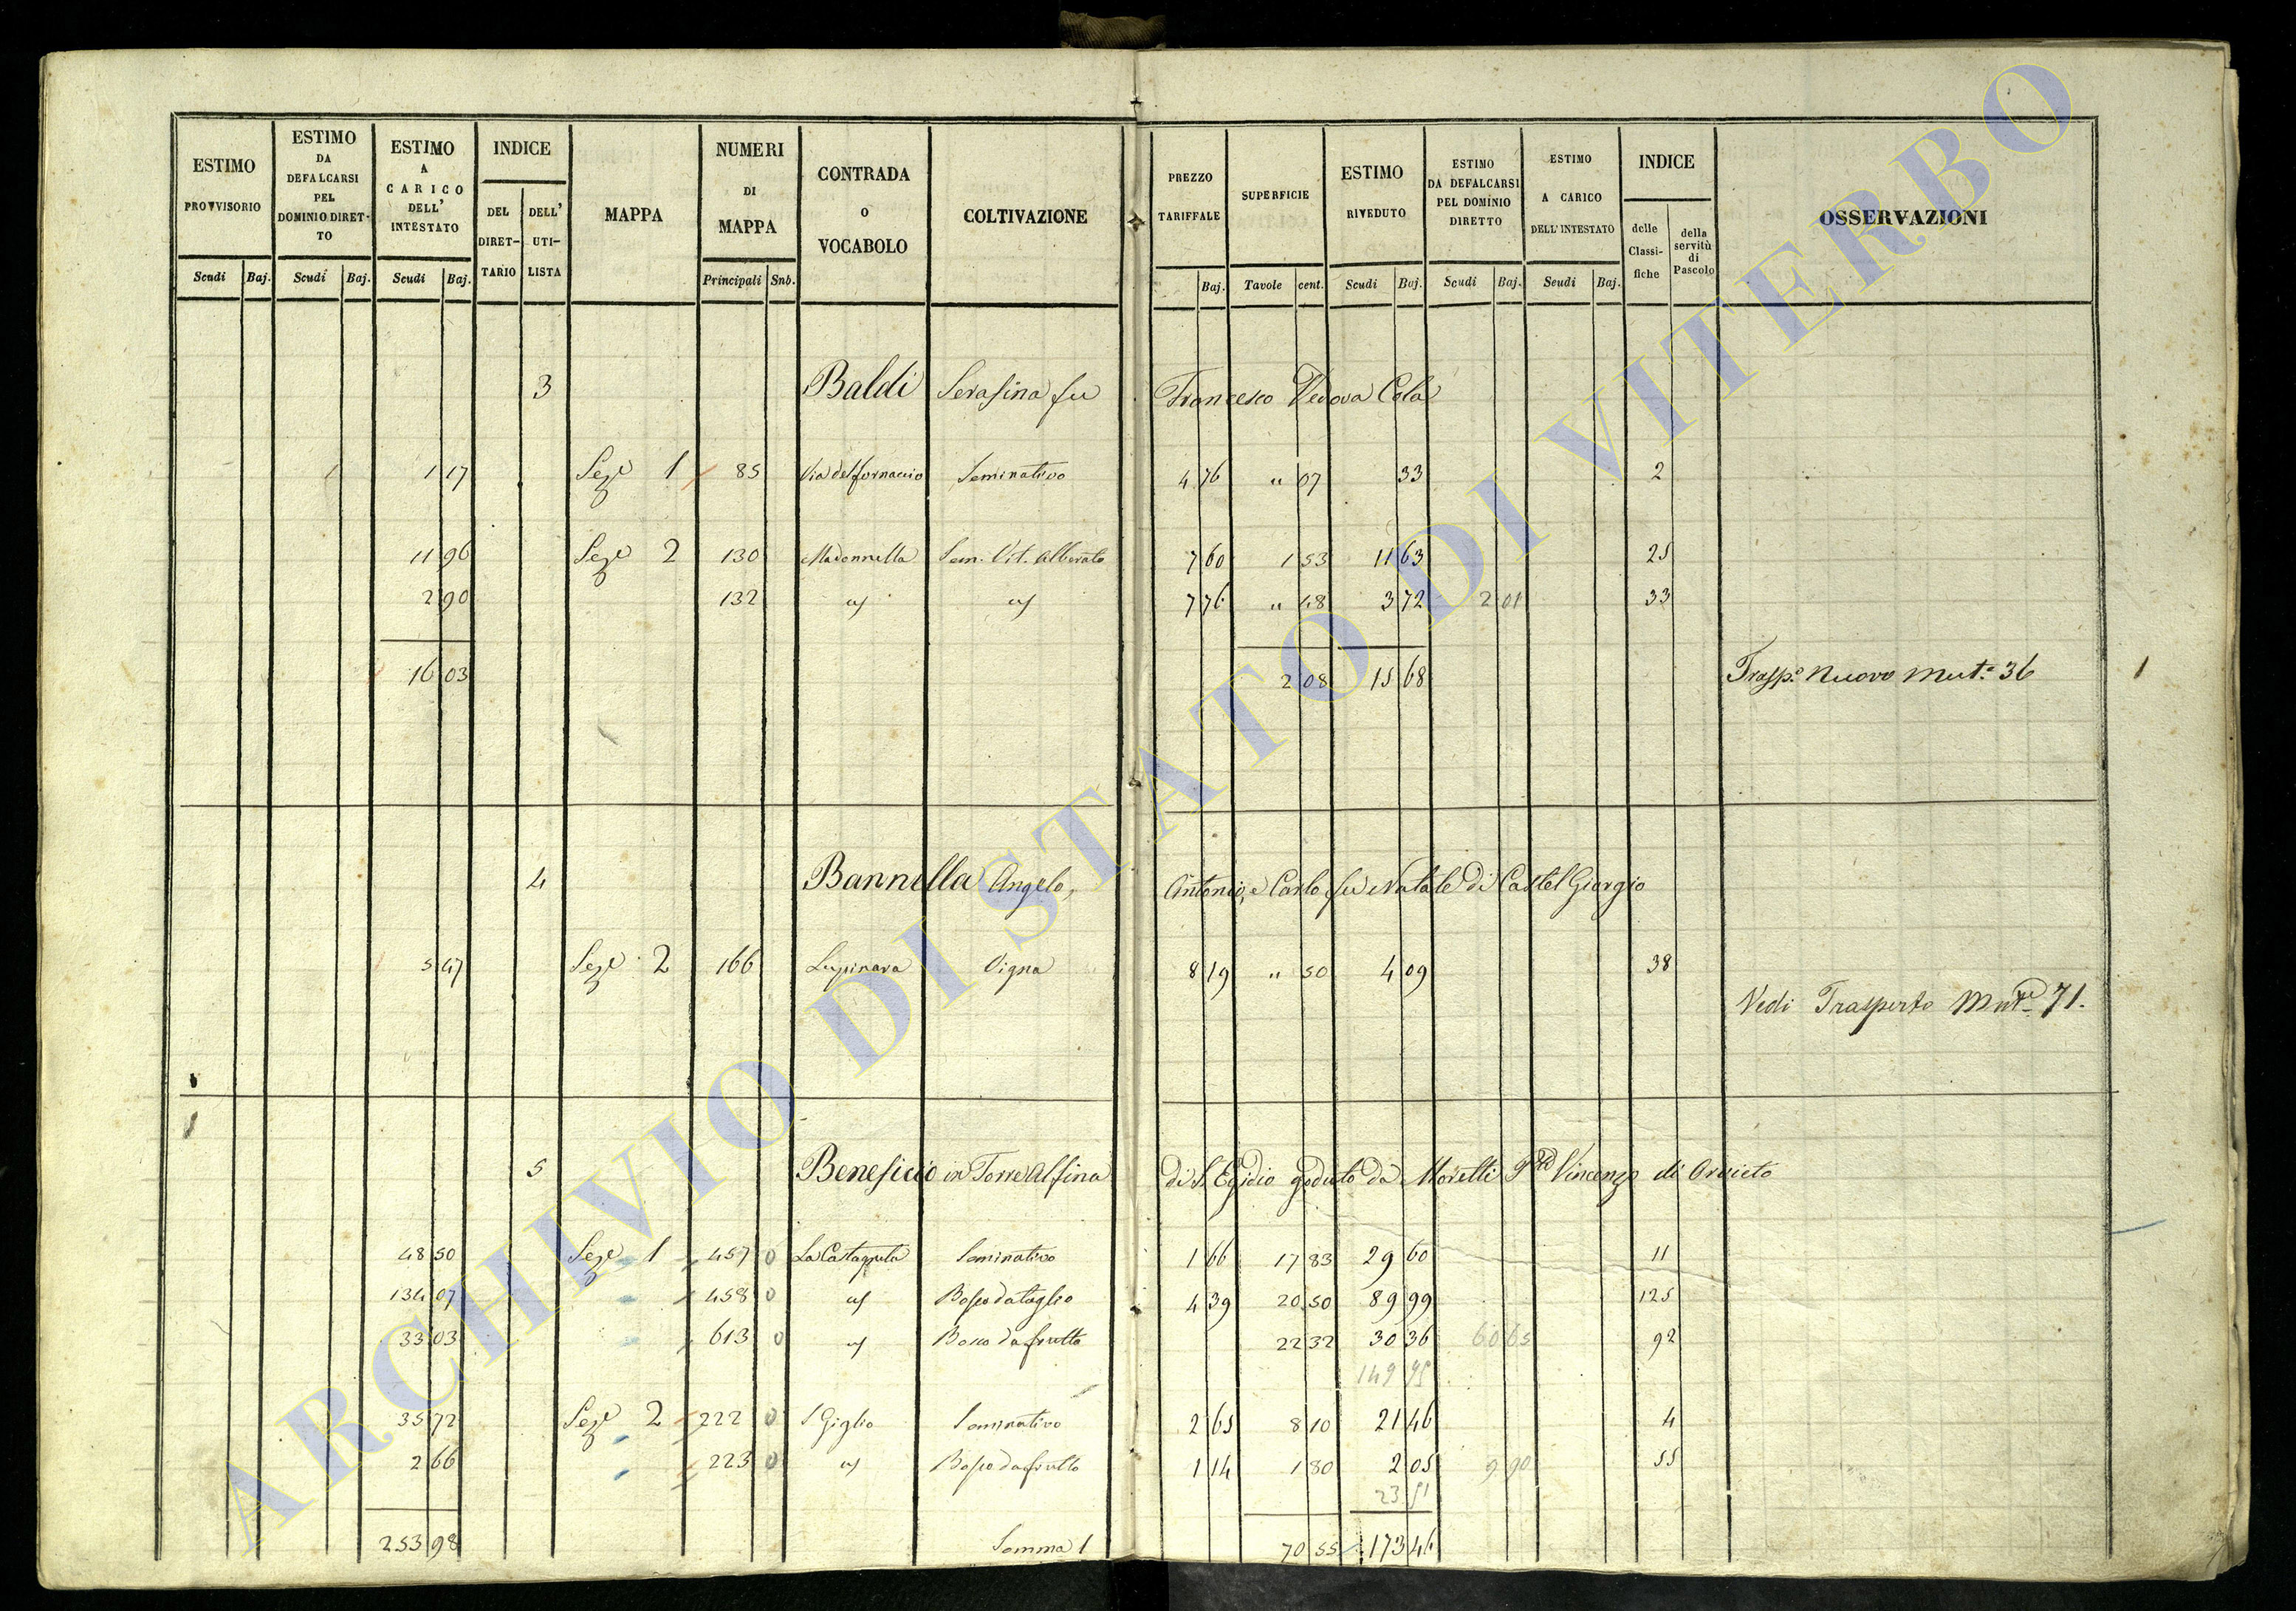 ESTIMO PROVVISORIO
ESTIMO DA DEFALCARSI PEL DOMINIO DIRET-TO
ESTIMO A CARICO DELL' INTESTATO
INDICE
DEL DIRET-TARIO
DELL' UTI-LISTA
MAPPA
NUMERI DI MAPPA
CONTRADA O VOCABOLO
COLTIVAZIONE
PREZZO TARIFFALE
SUPERFICIE
ESTIMO RIVEDUTO
ESTIMO DA DEFALCARSI PEL DOMINIO DIRETTO
ESTIMO A CARICO DELL' INTESTATO
INDICE
delle Classi-fiche
della servitù di Pascolo
OSSERVAZIONI
Scudi Baj. Scudi Baj. Scudi Baj. Principali Snb. Baj. Tavole cent. Scudi Baj. Scudi Baj. Scudi Baj.
3 Baldi Serafina fu Francesco Vedova Cola
1 17 Seze 1 85 Via del fornaccio Seminativo 4 76 " 07 33 2
11 96 Seze 2 130 Madonnella Sem. Vit. Alberato 7 60 1 53 11 63 25
2 90 132 7 76 " 48 3 72 2 01 33
16 03 2 08 15 68 Trasp.o Nuovo Mut.e 36 1
4 Bannella Angelo, Antonio, e Carlo fu Natale di Castel Giorgio
5 47 Seze 2 166 Lupinara Vigna 8 19 " 50 4 09 38
Vedi Trasporto Mut.e 71.
5 Beneficio in Torre Alfina di S. Egidio goduto da Moretti Vincenzo di Orvieto
48 50 Seze 1 457 0 La Castagneta Seminativo 1 66 17 83 29 60 11
134 07 458 0 Bosco da taglio 4 39 20 50 89 99 125
33 03 613 0 Bosco da frutto 22 32 30 36 60 65 92
149 95
35 72 Seze 2 222 0 S Giglio Seminativo 2 65 8 10 21 46 4
2 66 223 0 Bosco da frutto 1 14 1 80 2 05 9 90 55
23 51
253 98 Somma 1 70 55 173 46
ARCHIVIO DI STATO DI VITERBO